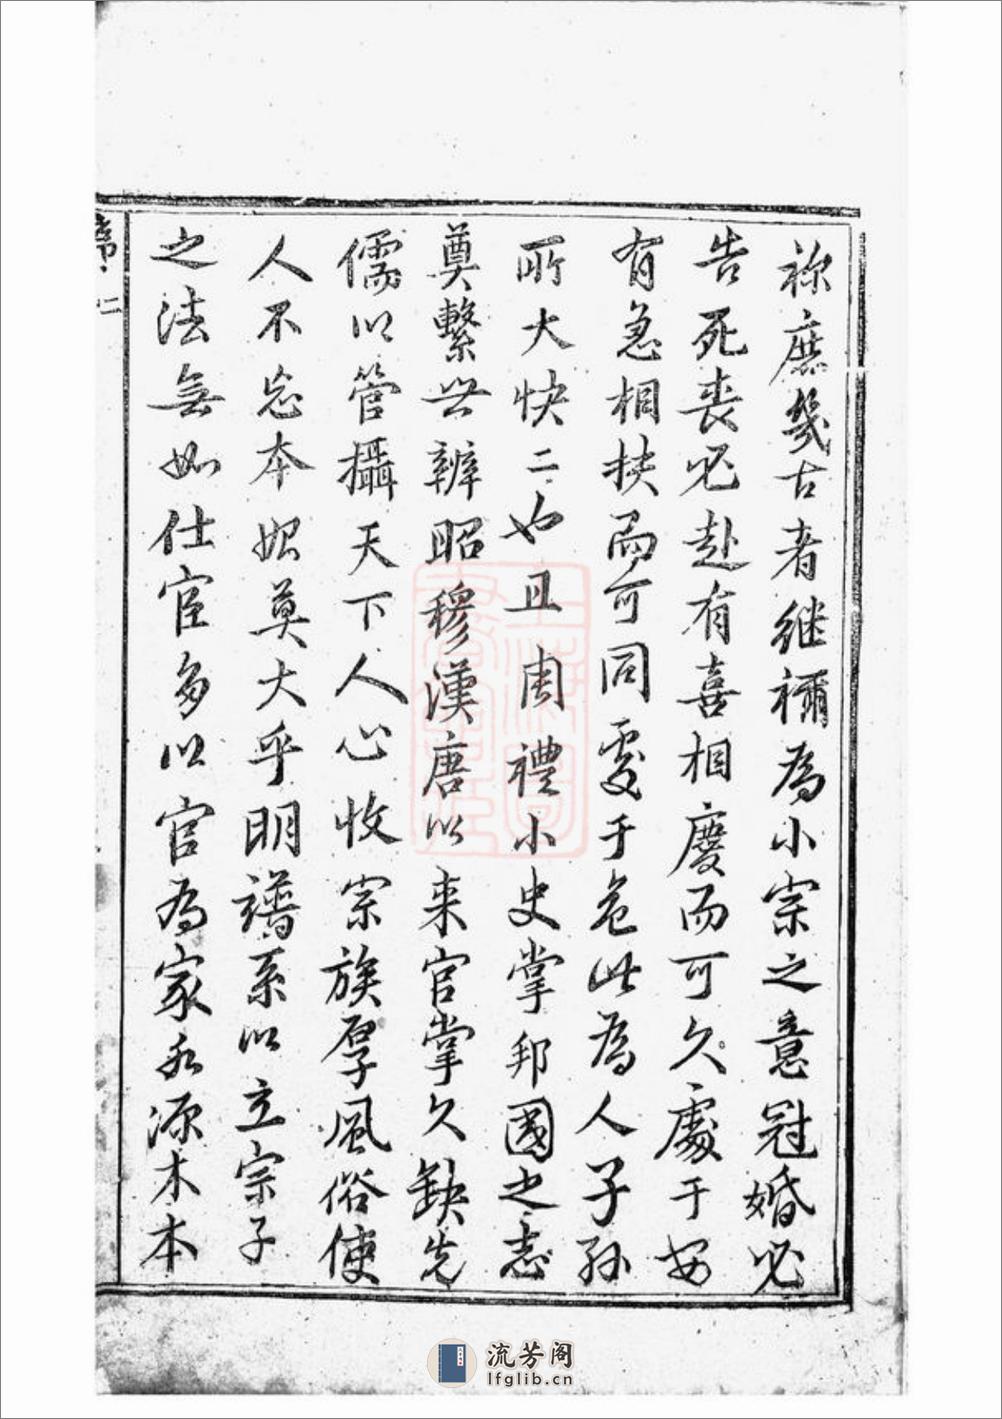 祢庶幾古者继禰為小宗之意冠婚必
告死丧必赴有喜相慶而可久處于安
有急相扶而可同处于危此為人子孙
所大快二也且周禮小史掌邦國之志
奠繫世辨昭穆漢唐以来官掌久缺先
儒以管攝天下人心收宗族厚風俗使
人不忘本始莫大乎明譜系以立宗子
之法無如仕宦多以官為家水源木本
序 二
流芳阁
lfglib.cn